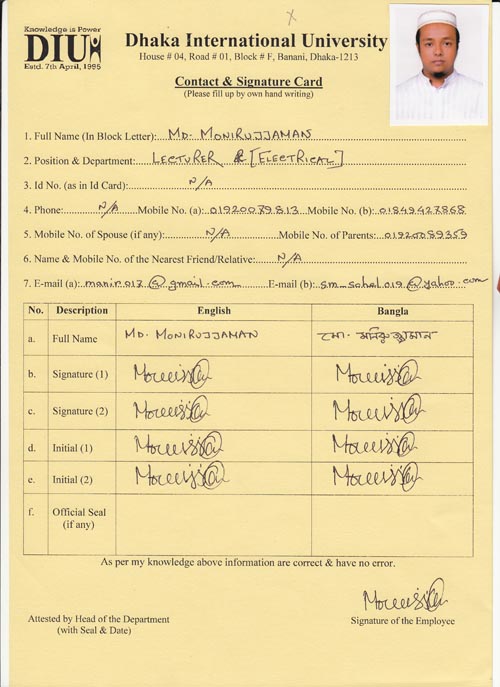 x
Knowledge is Power
DIU
Estd. 7th April, 1995
Dhaka International University
House # 04, Road # 01, Block # F, Banani, Dhaka-1213
Contact & Signature Card
(Please fill up by own hand writing)
1. Full Name (In Block Letter): MD. MONIRUJJAMAN
2. Position & Department: LECTURER & [ELECTRICAL]
3. Id No. (as in Id Card): N/A
4. Phone: N/A Mobile No. (a): 01920079813 Mobile No. (b): 01849427868
5. Mobile No. of Spouse (if any): N/A Mobile No. of Parents: 01920089359
6. Name & Mobile No. of the Nearest Friend/Relative: N/A
7. E-mail (a): manir.017@gmail.com E-mail (b): sm_sohel019@yahoo.com
No. Description English Bangla
a. Full Name MD. MONIRUJJAMAN মো. মনিরুজ্জামান
b. Signature (1)
c. Signature (2)
d. Initial (1)
e. Initial (2)
f. Official Seal
(if any)
As per my knowledge above information are correct & have no error.
Attested by Head of the Department
(with Seal & Date)
Signature of the Employee